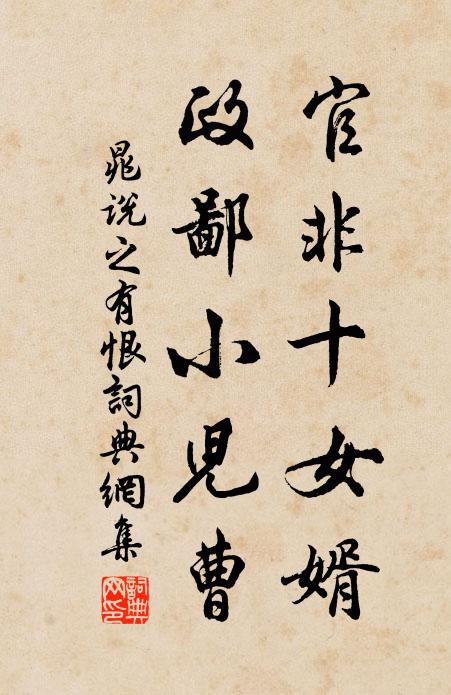 官非十女婿
政鄙小兒曹
晁說之有恨詞典網集
詞典網印